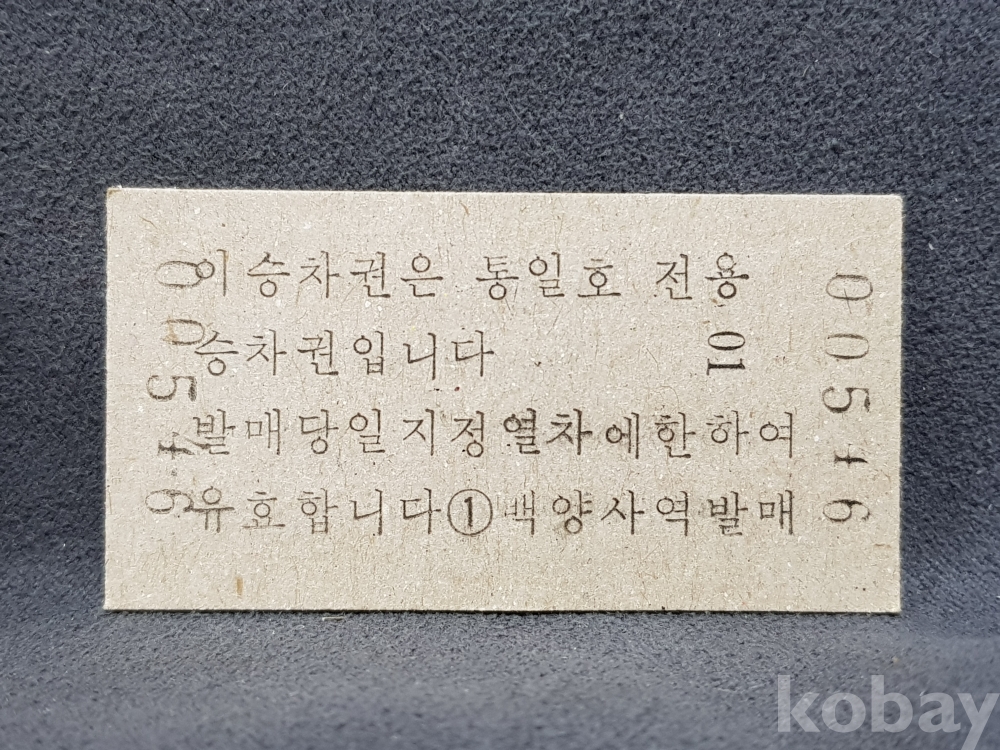 이승차권은 통일호 전용
승차권입니다
01
발매당일지정열차에한하여
유효합니다①백양사역발매
00546
00546
kobay